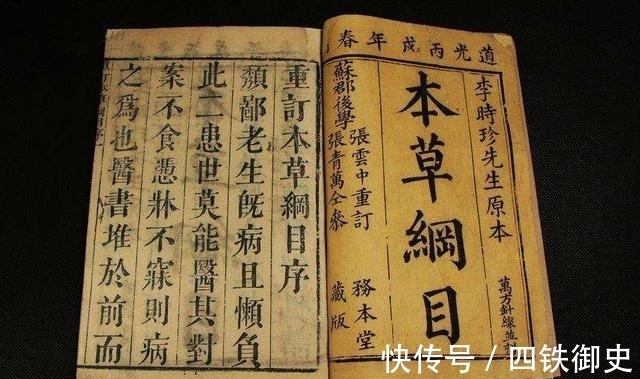 道光丙戌年春
李時珍先生原本
萬方針線並
本草綱目
蘇郡後學
張雲中重訂
張青萬仝參
務本堂
藏版
重訂本草綱目序
頽鄙老生旣病且懶負
此二患世莫能醫其對
案不食憑牀不寐則病
之爲也醫書堆於前而
快传号 / 四铁御史